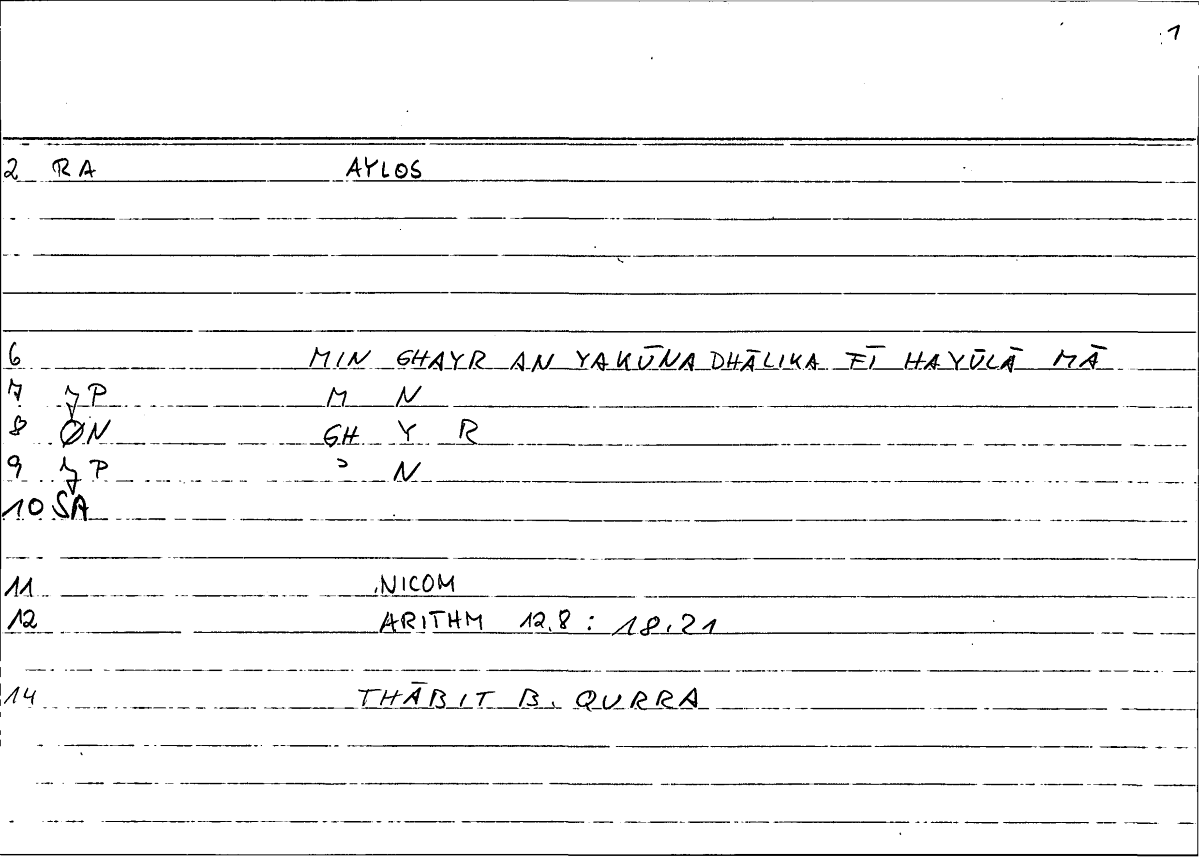 1
2 RA AYLOS
6 MIN GHAYR AN YAKŪNA DHĀLIKA FĪ HAYŪLĀ MĀ
7 P M N
8 ØN GH Y R
9 P ʾ N
10 SA
11 NICOM
12 ARITHM 12.8 : 18.21
14 THĀBIT B. QURRA